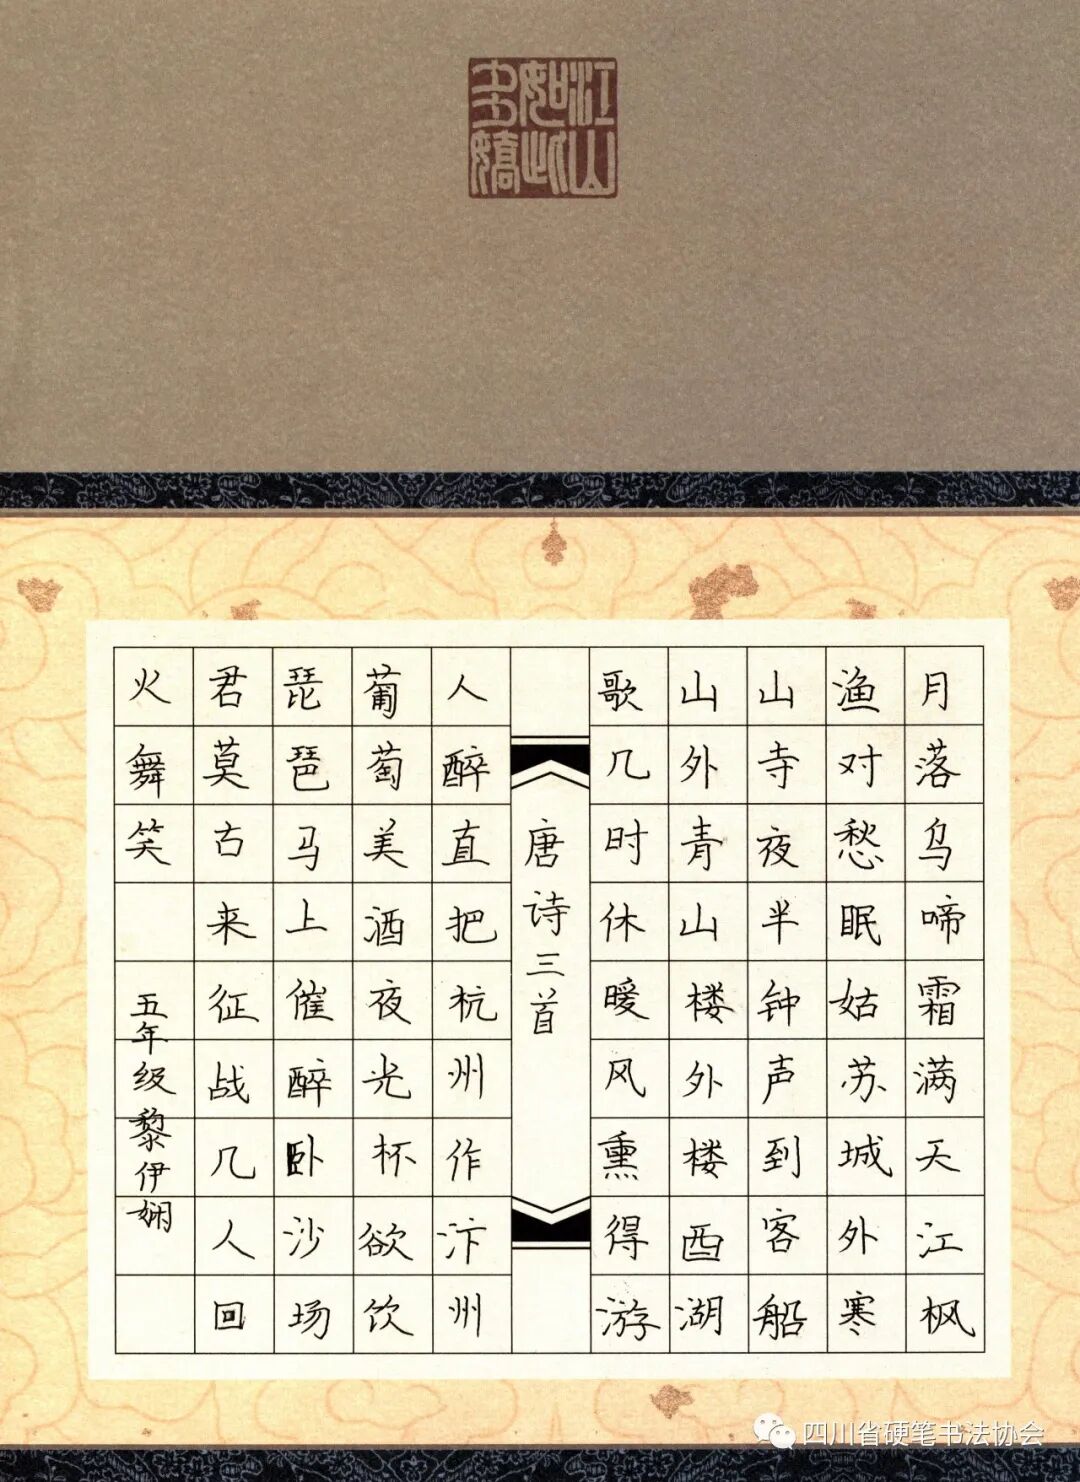 江山
如此
多嬌
月落乌啼霜满天江枫
渔对愁眠姑苏城外寒
山寺夜半钟声到客船
山外青山楼外楼酉湖
歌几时休暖风熏得游
唐诗三首
人醉直把杭州作汴州
葡萄美酒夜光杯欲饮
琵琶马上催醉卧沙场
君莫古来征战几人回
火舞笑
五年级黎伊娴
四川省硬笔书法协会